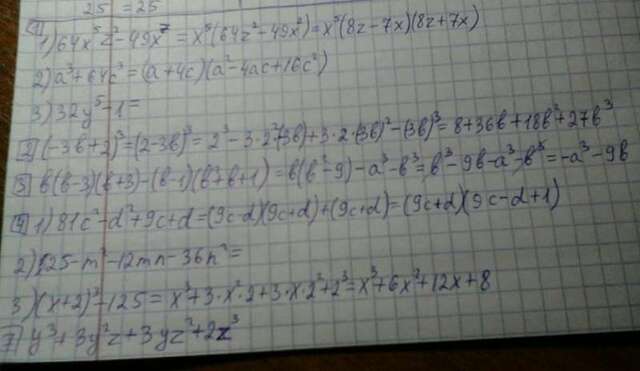 25 = 25
1 1) 64x⁵z²-49x⁷ = x⁵(64z²-49x²) = x⁵(8z-7x)(8z+7x)
2) a³+64c³ = (a+4c)(a²-4ac+16c²)
3) 32y⁵-1 =
2 (-3b+2)³ = (2-3b)³ = 2³-3·2²(3b)+3·2·(3b)²-(3b)³ = 8+36b+18b²+27b³
3 b(b-3)(b+3)-(b-1)(b²+b+1) = b(b²-9)-a³-b³ = b³-9b-a³-b³ = -a³-9b
4 1) 81c²-d²+9c+d = (9c-d)(9c+d)+(9c+d) = (9c+d)(9c-d+1)
2) 125-m²-12mn-36n² =
3) (x+2)³-125 = x³+3·x²·2+3·x·2²+2³ = x³+6x²+12x+8
7 y³+3y²z+3yz²+2z³